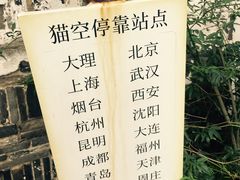 猫空停靠站点
大理 北京
上海 武汉
烟台 西安
杭州 沈阳
昆明 大连
成都 福州
青岛 天津
周庄